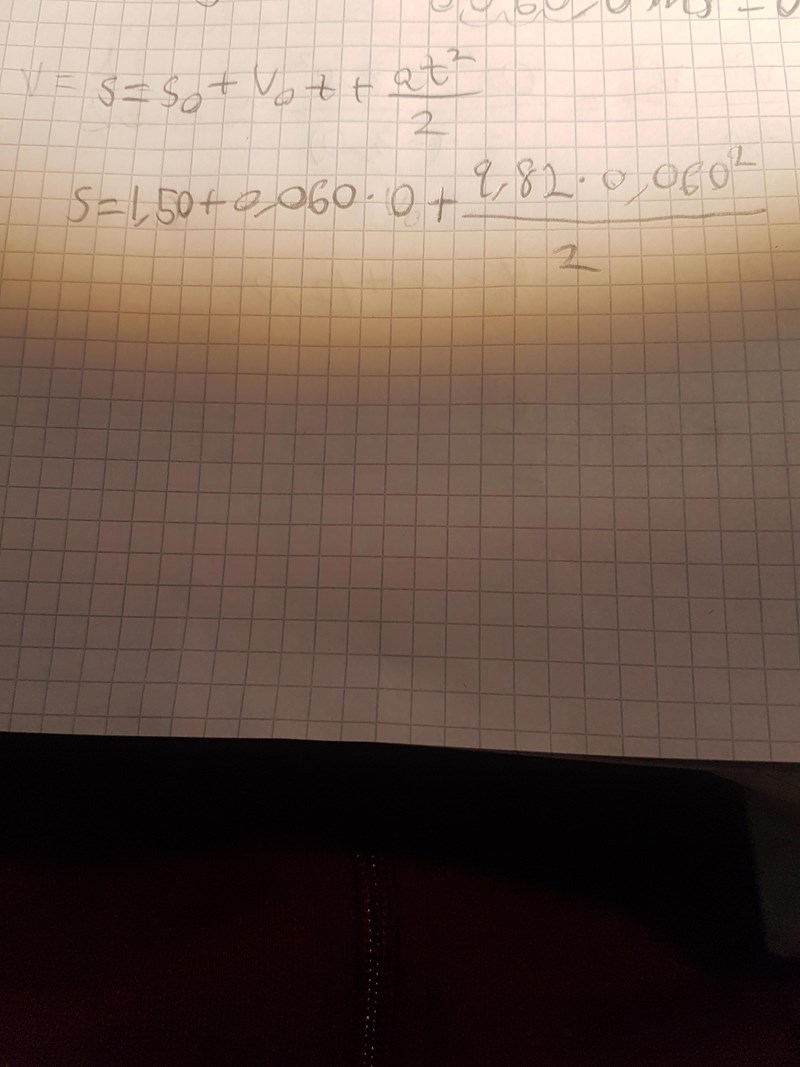 V = s = s₀ + v₀ t + at²/2
s = 1,50 + 0,060 · 0 + 9,82 · 0,060²/2